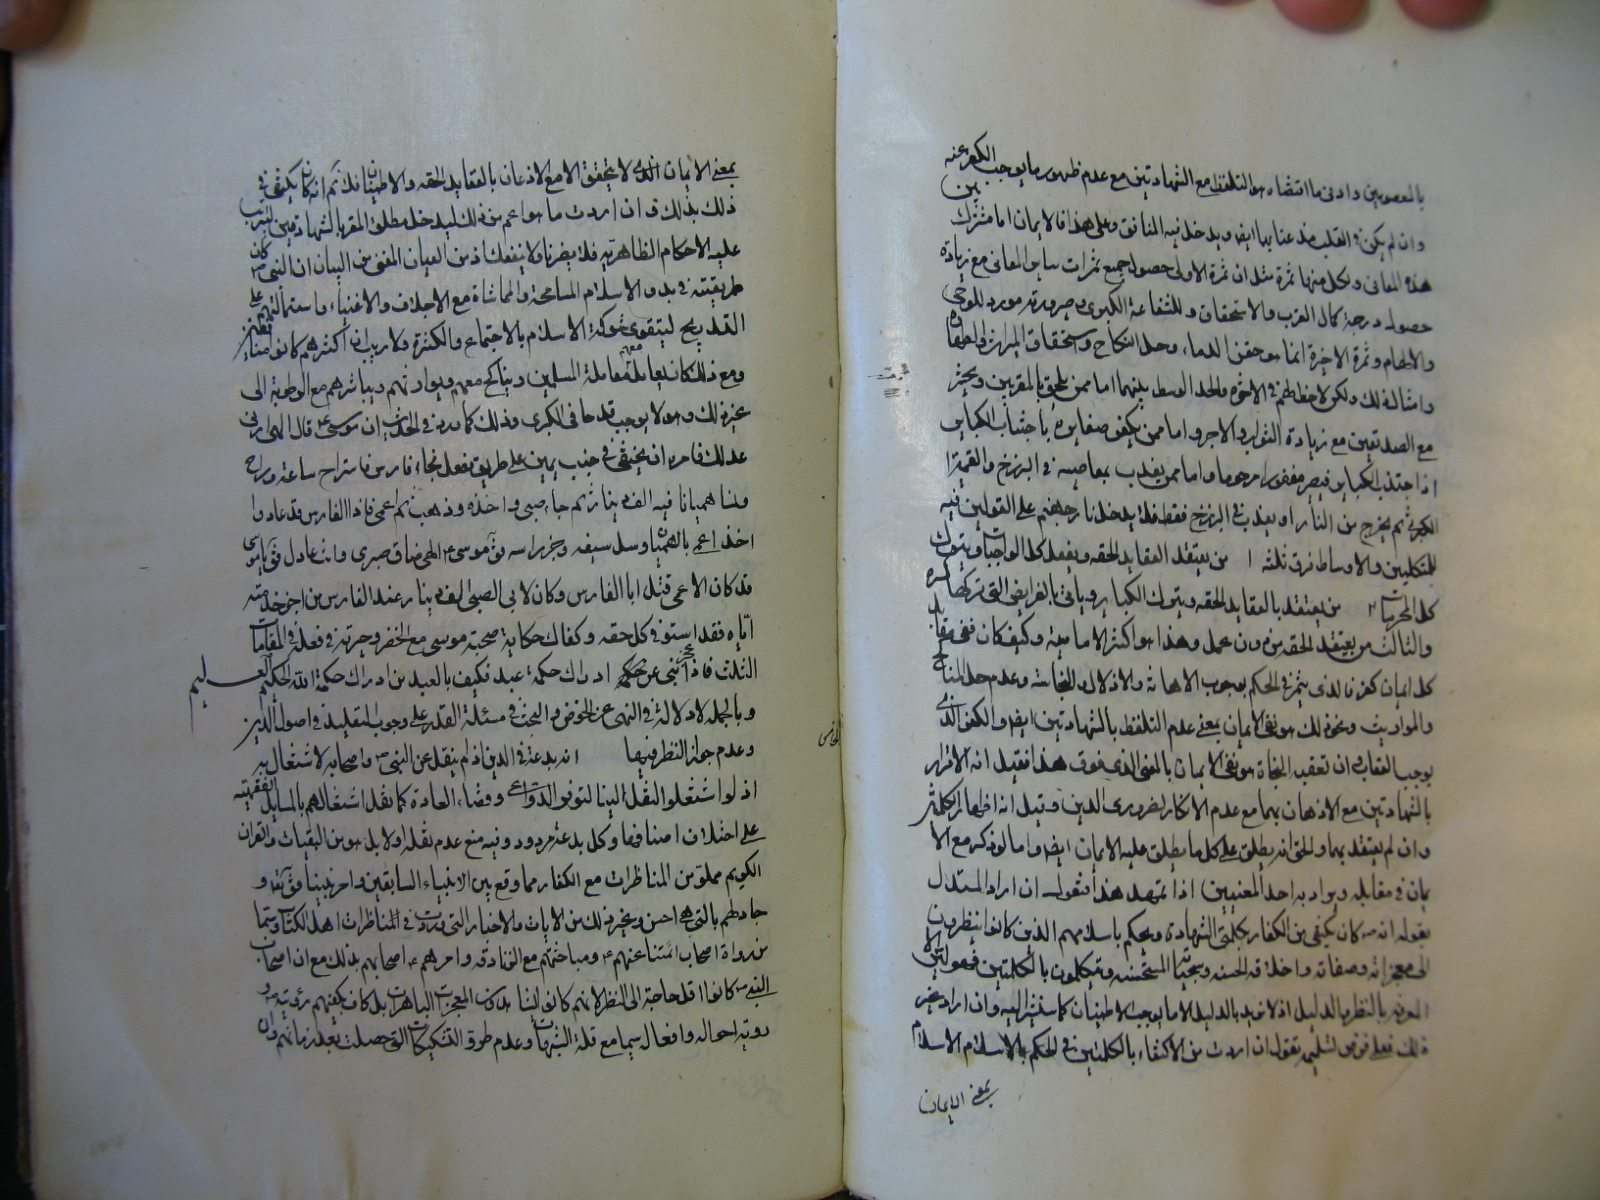 بالمعصومين وادنى ما اقتضاه هو التلفظ مع الشهادتين مع عدم ظهور ما يوجب الكفر عنه
وان لم يكن في القلب مذعنا بها ايض ويدخل فيه المنافق وعلى هذا فالايمان اما مشترك بين
هذه المعاني ولكل منها ثمرة مثل ان ثمرة الاولى حصول جميع ثمرات ساير المعاني مع زيادة
حصول درجة كمال القرب والاستحقاق للشفاعة الكبرى وصيرورته مورد للوحي
والالهام وثمرة الاخيرة انما هو حقن الدماء وحل النكاح واستحقاق الميراث
وامثال ذلك ولكن لاحظ لهم في الاخرة والحد الوسط بينهما اما ممن يلحق بالمقربين ويحشر
مع الصديقين مع زيادة الثواب والاجر واما ممن يكفر صغايره باجتناب الكباير
اذا اجتنب الكباير فيصير مغفورا مرحوما واما ممن يعذب بمعاصيه في البرزخ والقيمة
الكبرى ثم يخرج من النار او يعذب في البرزخ فقط فلا يدخل نار جهنم على القولين فيه
للمتكلمين والاوساط فرق ثلثة ١ من يعتقد العقايد الحقه ويفعل كل الواجبات ويترك
كل المحرمات ٢ من يعتقد بالعقايد الحقه ويترك الكباير وياتي بالفرايض التي تركها كبيرة
والثالث من يعتقد الحقه من دون عمل وهذا هو اكثر الامامية وكيف كان ففي مقابل
كل ايمان كفر فالذي يثمر في الحكم بوجوب الاهانة والاذلال والنجاسة وعدم حل المناكح
والمواريث ونحو ذلك هو نفي الايمان بمعنى عدم التلفظ بالشهادتين ايض والكفر الذي
يوجب العقاب في ان تعقب النجاة هو نفي الايمان بالمعنى الذي فوق هذا فقيل انه الاقرار
بالشهادتين مع الاذعان بهما مع عدم الانكار لضروري الدين وقيل انه اظهار الكلمتين
وان لم يعتقد بهما والحق انه يطلق على كل ما يطلق عليه الايمان ايض واما لو ذكر مع الا
يمان في مقابله ويراد به احد المعنيين اذا تمهد هذا فنقول ان اراد المستدل
بقوله انه ص كان يكتفي من الكفار بكلمتي الشهادة ويحكم باسلامهم الذين كانوا ينظرون
الى معجزاته وصفاته واخلاقه الحسنه وسجيته المستحسنه ويتكلمون بالكلمتين فهو
المعرفه بالنظر بالدليل اذ لا نريد بالدليل الا ما يوجب الاطمينان كما سنشير اليه وان اراد غير
ذلك فعلى فرض تسليمه نقول ان اردت من الاكتفاء بالكلمتين في الحكم بالاسلام الاسلام
بمعنى الايمان
بمعنى الايمان الذي لا يتحقق الا مع الاذعان بالعقايد الحقه والاطمينان فلا نم انه كان يكتفي في
ذلك بذلك وان اردت ما هو اعم من ذلك ليدخل مطلق المقر بالشهادتين ليترتب
عليه الاحكام الظاهرية فلا يضرنا ولا ينفعك اذ من العيان المغني من البيان ان النبي ص كان
طريقته في بدو الاسلام المسامحة والمماشاة مع الاجلاف والاغنياء واستمالتهم على
التدريج ليتقوى شوكة الاسلام بالاجتماع والكثرة ولا ريب ان اكثرهم كانوا منافقين
ومع ذلك كان يعامل معهم معاملة المسلمين ويناكح معهم ويوادهم ويباشرهم مع الرطوبة الى
غير ذلك وهو لا يوجب قدحا في الكبرى وذلك كما ورد في الحديث ان موسى ع قال الهي ارني
عدلك فامره ان يختفي في جنب عين على طريق ففعل فجاء فارس فاستراح ساعة وراح
ونسا هميانا فيه الف دينار ثم جاء صبي واخذه وذهب ثم اعمى فاذا الفارس قد عاد وا
اخذ اعمى بالهميان وسل سيفه وجز راسه فق موسى ع الهي ضاق صبري وانت عادل فق يا موسى
قد كان الاعمى قتل ابا الفارس وكان لابي الصبي الف دينار عند الفارس من اجر خدمته
اياه فقد استوفى كل حقه وكفاك حكاية صحبة موسى مع الخضر وحيرته في فعله في المقامات
الثلث فاذا عجز نبي عن ادراك حكمة عبد فكيف بالعبد من ادراك حكمة الله الحكيم العليم
وبالجمله لا دلالة في النهي عن الخوض والبحث في مسئلة القدر على وجوب التقليد في اصول الدين
وعدم جواز النظر فيها انه بدعة في الدين اذ لم ينقل عن النبي ص واصحابه الاشتغال به
اذ لو اشتغلوا لنقل الينا لتوفر الدواعي وقضاء العادة كما نقل اشتغالهم بالمسايل الفقهية
على اختلاف اصنافها وكل بدعة مردود وفيه منع عدم نقله اولا بل هو من البقيات والقران
الكريم مملو من المناظرات مع الكفار مما وقع بين الانبياء السابقين وامر نبينا فق تعا و
جادلهم بالتي هي احسن وغير ذلك من الايات والاخبار التي وردت في المناظرات اهل الكتاب وسيما
من رواة اصحاب ائمتنا عنهم ع ومباحثتهم مع الزنادقه وامرهم ع اصحابهم بذلك مع ان اصحاب
النبي ص كانوا اقل حاجة الى النظر لانهم كانوا المعجزات الباهرات بل كان يكفيهم رؤيته ص و
روية احواله وافعاله سيما مع قلة الشبهات وعدم طروق التشكيكات التي حصلت بعد زمانهم وان
الخامس